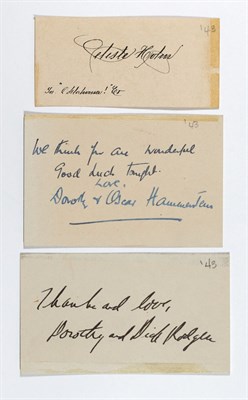 '43
Celeste Holm
In "Oklahoma!"
'43
We think you are wonderful
Good luck tonight.
Love,
Dorothy & Oscar Hammerstein
'43
Thanks and love,
Dorothy and Dick Rodgers